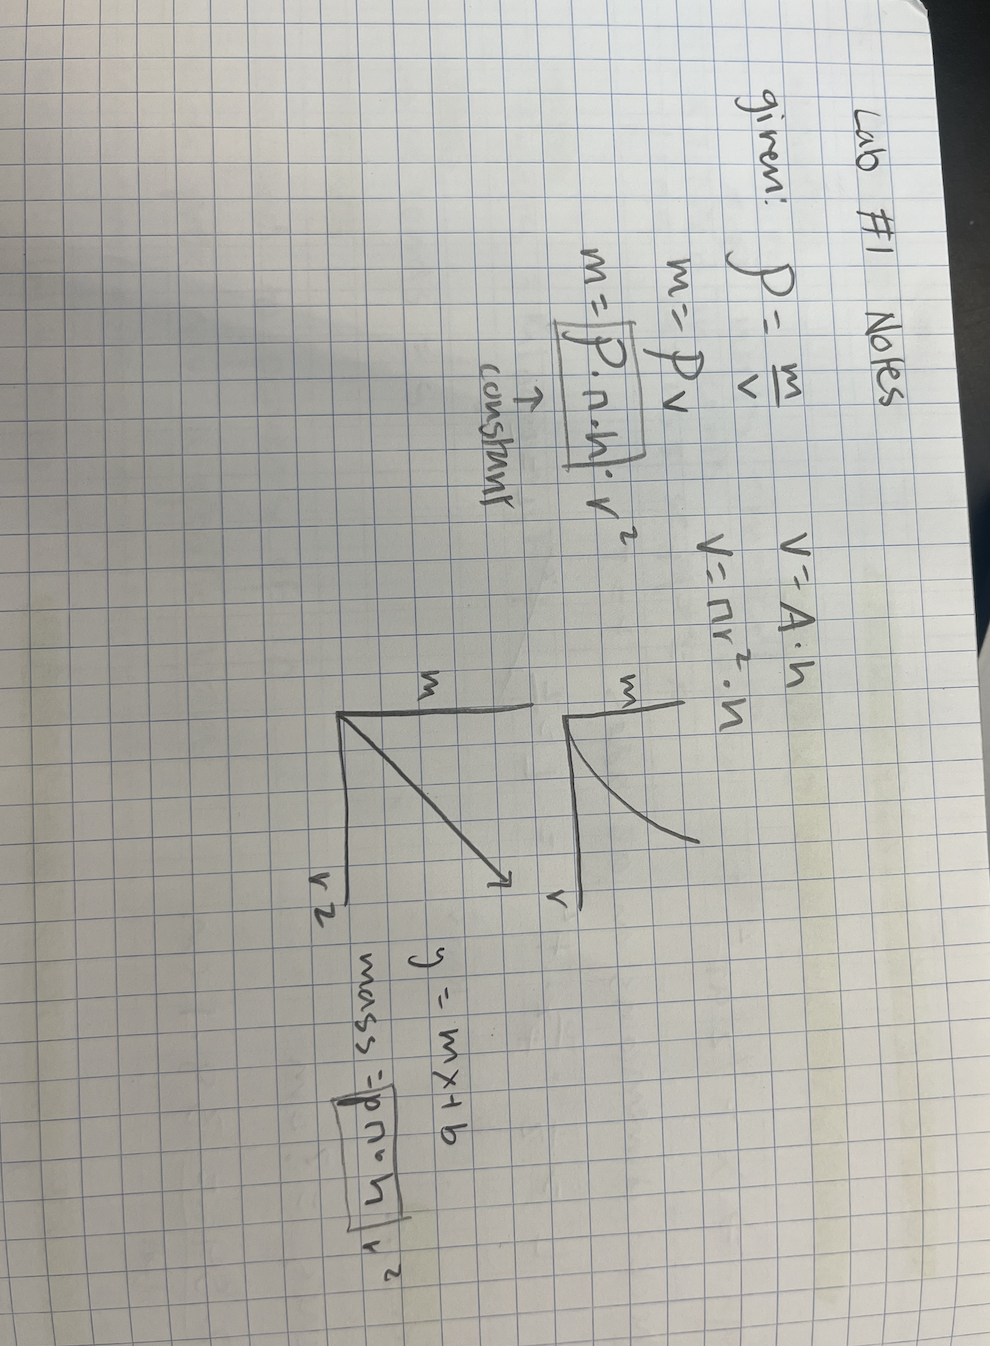 Lab #1 Notes
given: ρ = m/v
v = A·h
m = ρv
v = πr²·h
m = ρ·π·h·r²
↑
constant
m
r
m
r²
y = mx+b
mass = ρπ·h r²